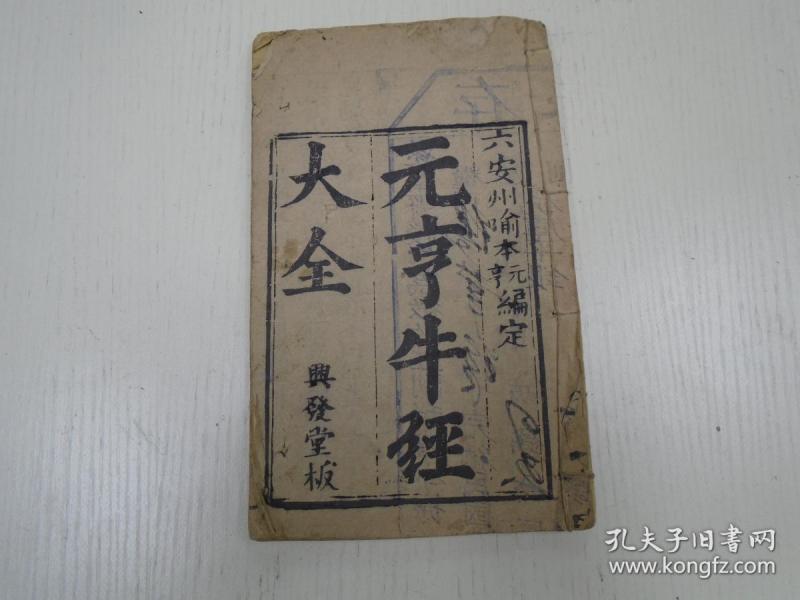 六安州喻本元亨編定
元亨牛經
大全
興發堂板
孔夫子旧书网
www.kongfz.com